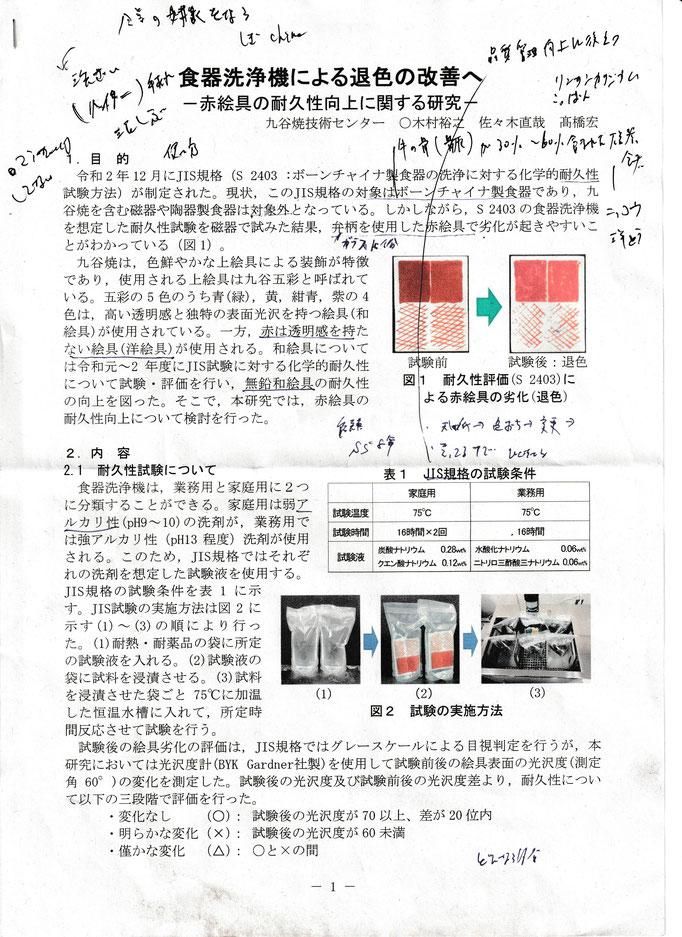 食器洗浄機による退色の改善へ
―赤絵具の耐久性向上に関する研究―
九谷焼技術センター　○木村裕之　佐々木直哉　髙橋宏
1．目　的
令和２年12月にJIS規格（S 2403：ボーンチャイナ製食器の洗浄に対する化学的耐久性
試験方法）が制定された。現状，このJIS規格の対象はボーンチャイナ製食器であり，九
谷焼を含む磁器や陶器製食器は対象外となっている。しかしながら，S 2403の食器洗浄機
を想定した耐久性試験を磁器で試みた結果，弁柄を使用した赤絵具で劣化が起きやすいこ
とがわかっている（図1）。
九谷焼は，色鮮やかな上絵具による装飾が特徴
であり，使用される上絵具は九谷五彩と呼ばれて
いる。五彩の５色のうち青(緑)，黄，紺青，紫の４
色は，高い透明感と独特の表面光沢を持つ絵具(和
絵具)が使用されている。一方，赤は透明感を持た
ない絵具(洋絵具)が使用される。和絵具について
は令和元～２年度にJIS試験に対する化学的耐久性
について試験・評価を行い，無鉛和絵具の耐久性
の向上を図った。そこで，本研究では，赤絵具の
耐久性向上について検討を行った。
試験前
試験後：退色
図１　耐久性評価(S 2403)に
よる赤絵具の劣化(退色)
２．内　容
2.1　耐久性試験について
食器洗浄機は，業務用と家庭用に２つ
に分類することができる。家庭用は弱ア
ルカリ性(pH9～10)の洗剤が，業務用で
は強アルカリ性（pH13 程度）洗剤が使用
される。このため，JIS規格ではそれぞ
れの洗剤を想定した試験液を使用する。
JIS規格の試験条件を表１に示
す。JIS試験の実施方法は図２に
示す(1)～(3)の順により行っ
た。(1)耐熱・耐薬品の袋に所定
の試験液を入れる。(2)試験液の
袋に試料を浸漬させる。(3)試料
を浸漬させた袋ごと 75℃に加温
した恒温水槽に入れて，所定時
間反応させて試験を行う。
表１　JIS規格の試験条件
家庭用　業務用
試験温度　75℃　75℃
試験時間　16時間×2回　16時間
試験液　炭酸ナトリウム　0.28wt%　水酸化ナトリウム　0.06wt%
クエン酸ナトリウム　0.12wt%　ニトリロ三酢酸三ナトリウム　0.06wt%
(1)　(2)　(3)
図２　試験の実施方法
試験後の絵具劣化の評価は，JIS規格ではグレースケールによる目視判定を行うが，本
研究においては光沢度計(BYK Gardner社製)を使用して試験前後の絵具表面の光沢度(測定
角 60°)の変化を測定した。試験後の光沢度及び試験前後の光沢度差より，耐久性につい
て以下の三段階で評価を行った。
・変化なし　　（○）：試験後の光沢度が 70 以上、差が 20 位内
・明らかな変化（×）：試験後の光沢度が 60 未満
・僅かな変化　（△）：○と×の間
― 1 ―